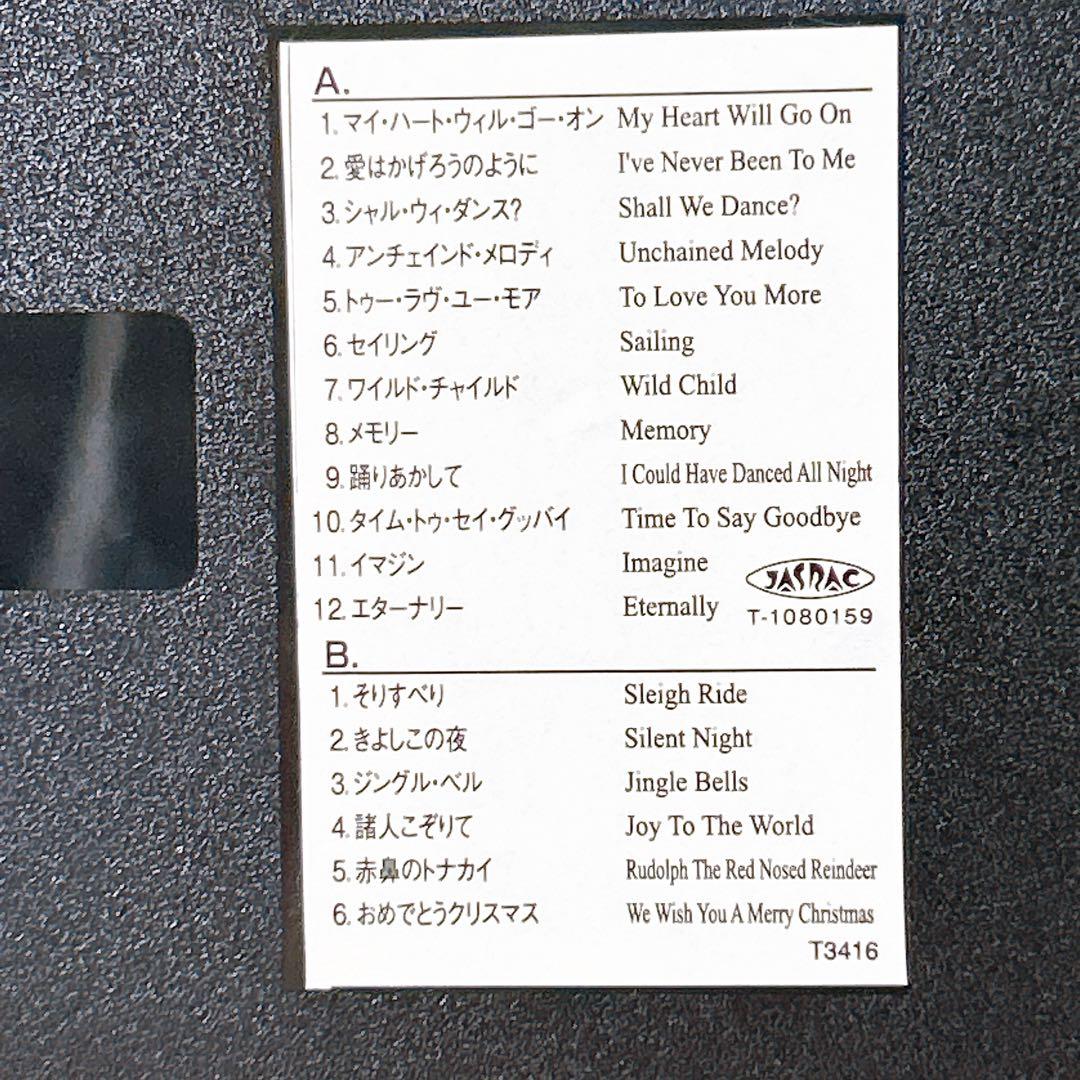 A.
1. マイ・ハート・ウィル・ゴー・オン My Heart Will Go On
2. 愛はかげろうのように I've Never Been To Me
3. シャル・ウィ・ダンス? Shall We Dance?
4. アンチェインド・メロディ Unchained Melody
5. トゥー・ラヴ・ユー・モア To Love You More
6. セイリング Sailing
7. ワイルド・チャイルド Wild Child
8. メモリー Memory
9. 踊りあかして I Could Have Danced All Night
10. タイム・トゥ・セイ・グッバイ Time To Say Goodbye
11. イマジン Imagine
12. エターナリー Eternally
JASRAC
T-1080159
B.
1. そりすべり Sleigh Ride
2. きよしこの夜 Silent Night
3. ジングル・ベル Jingle Bells
4. 諸人こぞりて Joy To The World
5. 赤鼻のトナカイ Rudolph The Red Nosed Reindeer
6. おめでとうクリスマス We Wish You A Merry Christmas
T3416